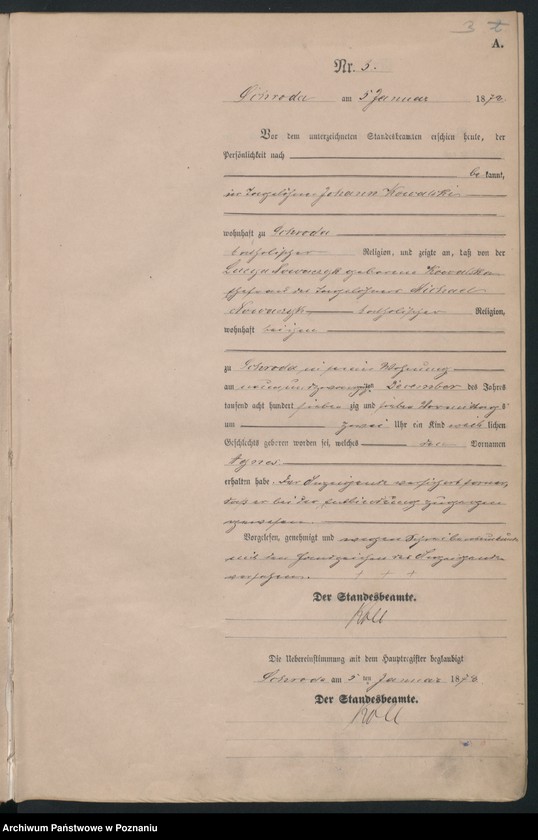 3
A.
Nr. 5.
Schroda am 5 Januar 1878
Vor dem unterzeichneten Standesbeamten erschien heute, der
Persönlichkeit nach
be kannt,
Johann Kowalski
wohnhaft zu Schroda
katholischer Religion, und zeigte an, daß von der
Nowaczyk geborene Kowalska
Ehefrau des Tagelöhners Michael
Nowaczyk katholischer Religion,
wohnhaft bei ihm
zu Schroda in seiner Wohnung
am neunundzwanzigsten December des Jahres
tausend acht hundert sieben zig und sieben Vormittags
um zwei Uhr ein Kind weib lichen
Geschlechts geboren worden sei, welches den Vornamen
Agnes
erhalten habe. Der Anzeigende versichert ferner,
daß er bei der Entbindung zugegen
gewesen.
Vorgelesen, genehmigt und wegen Schreibensunkunde
mit den Handzeichen des Anzeigenden
versehen. + + +
Der Standesbeamte.
Koll
Die Uebereinstimmung mit dem Hauptregister beglaubigt
Schroda am 5 ten Januar 1878
Der Standesbeamte.
Koll
Archiwum Państwowe w Poznaniu